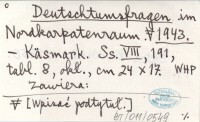 Deutschtumsfragen im
Nordkarpatenraum ∀ 1943.
- Käsmark. Ss. VIII, 191,
tabl. 8, okł., cm 24 x 17. WHP
Zawiera:
∀ [Wpisać podtytuł.]
BT/011/0549